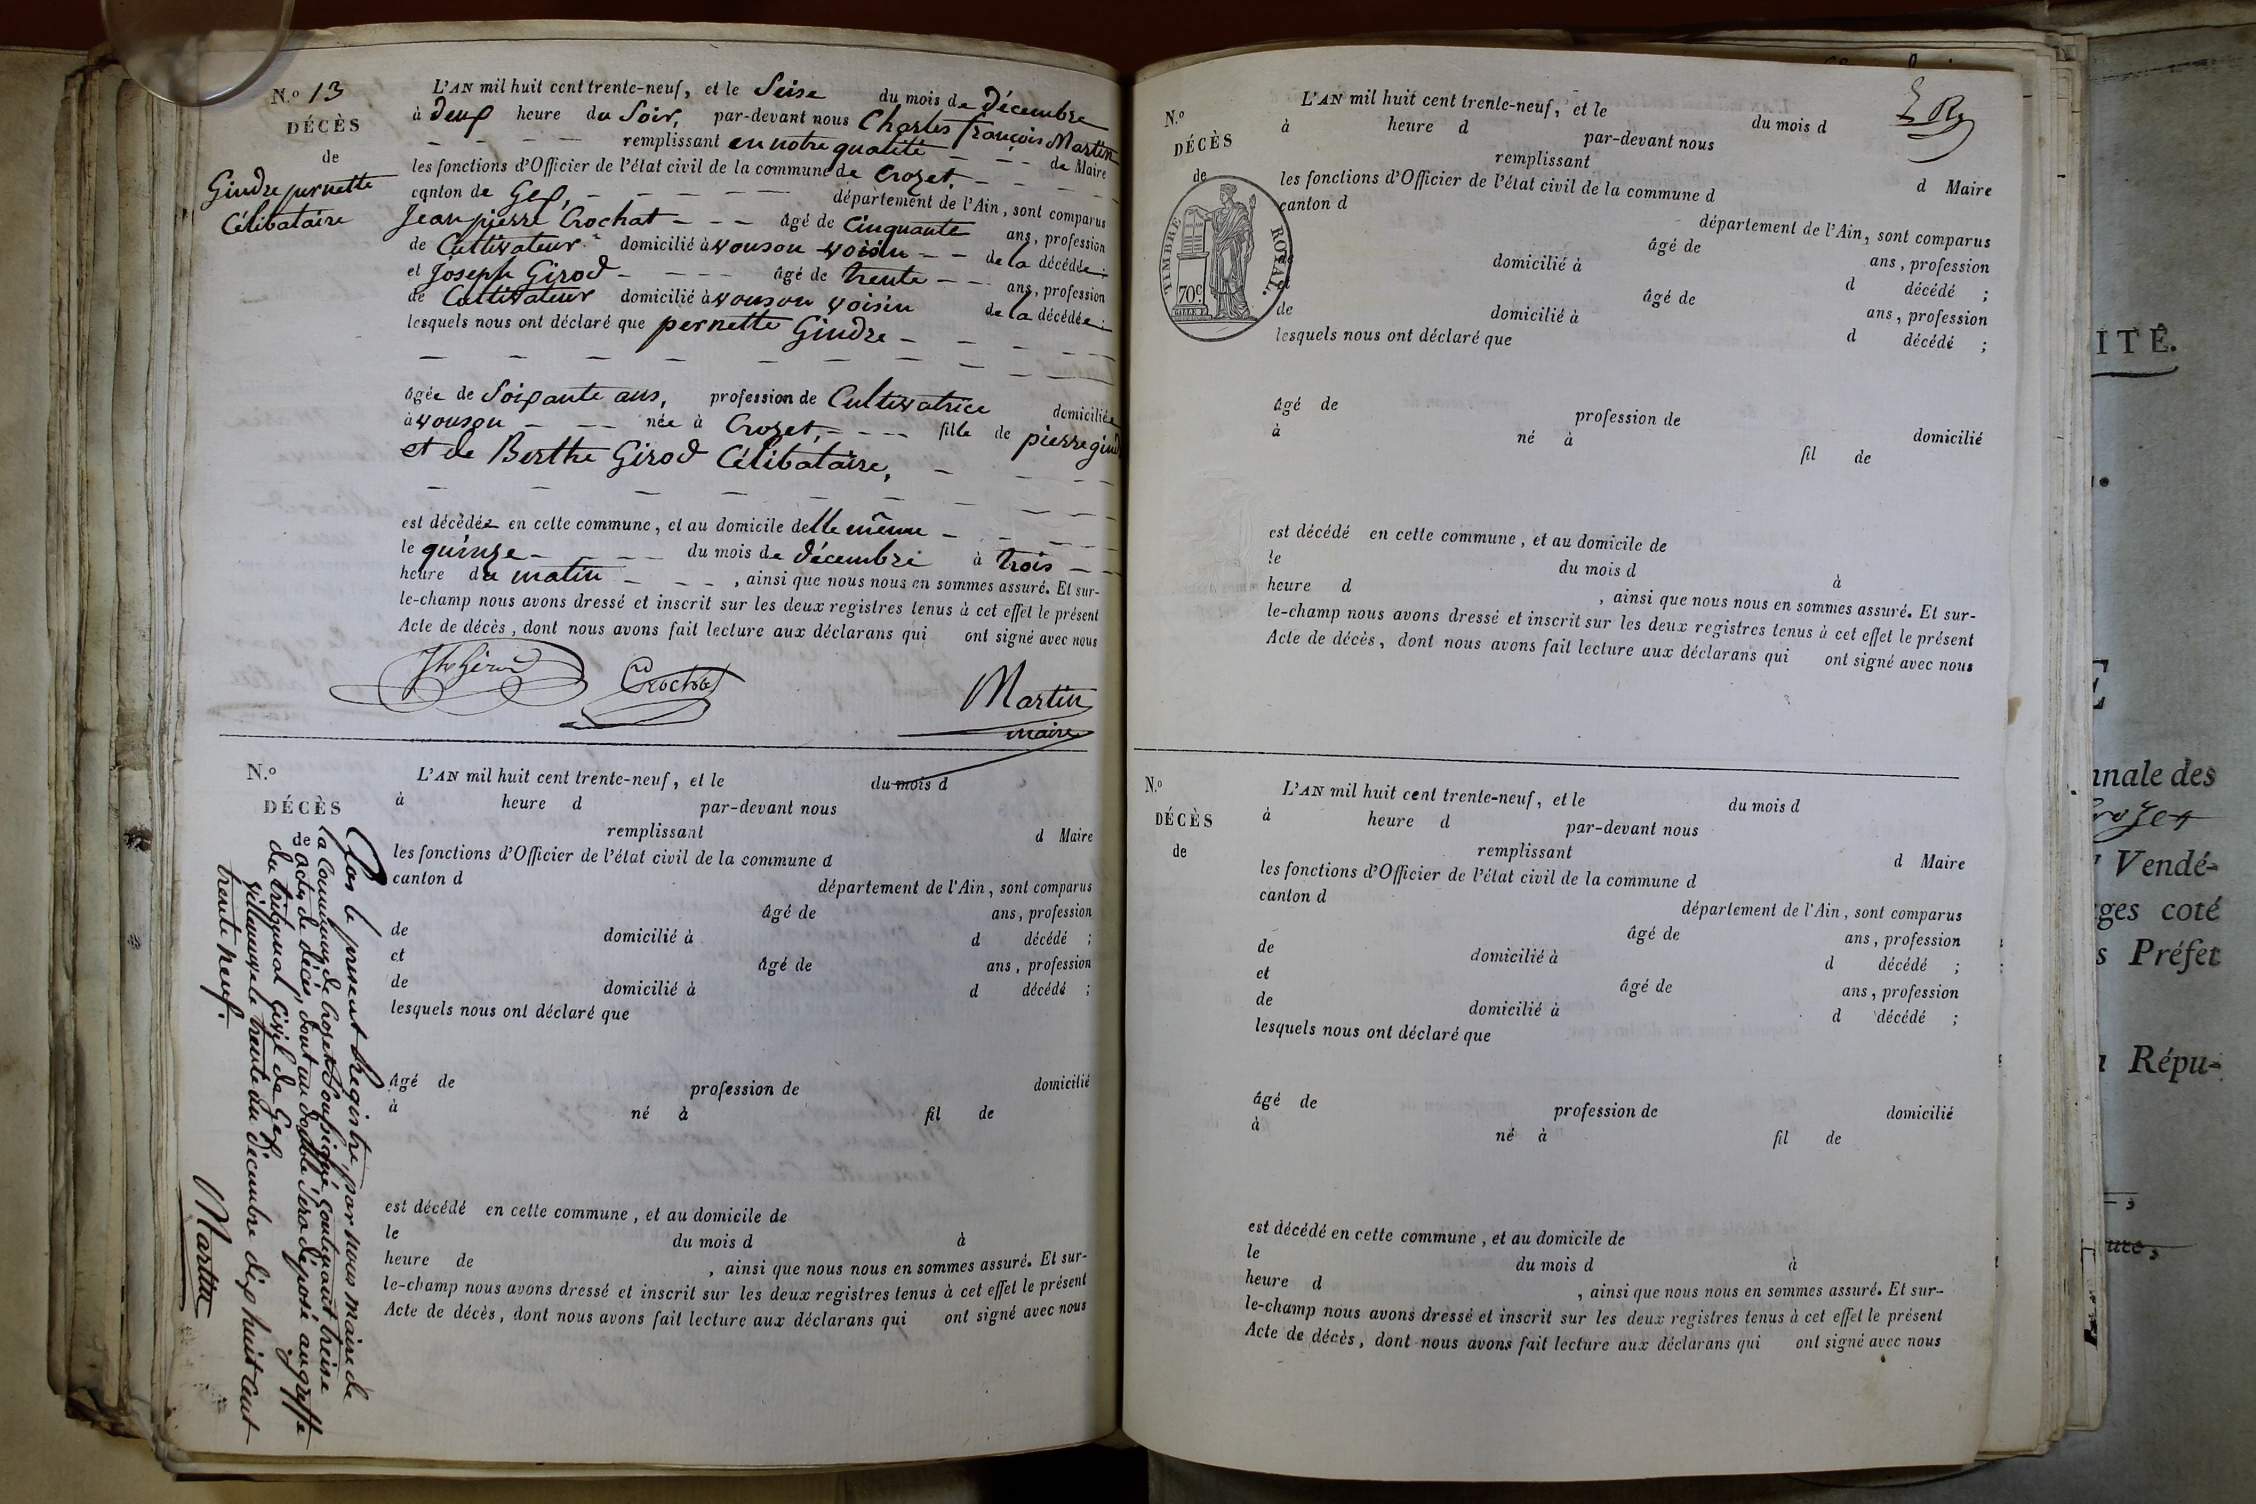 N.o 13
DÉCÈS
de
Gindre pernette
Célibataire
L'AN mil huit cent trente-neuf, et le Seise du mois de décembre
à deux heure du Soir, par-devant nous Charles François Martin
remplissant en notre qualité de Maire
les fonctions d'Officier de l'état civil de la commune de Crozet,
canton de Gex, département de l'Ain, sont comparus
Jean pierre Crochat âgé de Cinquante ans, profession
de Cultivateur domicilié à vouson voisin de la décédée ;
et Joseph Girod âgé de trente ans, profession
de Cultivateur domicilié à vouson voisin de la décédée ;
lesquels nous ont déclaré que pernette Gindre
âgée de Soixante ans, profession de Cultivatrice domiciliée
à vouson née à Crozet, fille de pierre gindre
et de Berthe Girod Célibataire,
est décédée en cette commune, et au domicile delle même
le quinze du mois de décembre à trois
heure du matin , ainsi que nous nous en sommes assuré. Et sur-
le-champ nous avons dressé et inscrit sur les deux registres tenus à cet effet le présent
Acte de décès, dont nous avons fait lecture aux déclarans qui ont signé avec nous
Jh Girod Crochat Martin
maire
N.o
DÉCÈS
de
L'AN mil huit cent trente-neuf, et le du mois d
à heure d par-devant nous
remplissant d Maire
les fonctions d'Officier de l'état civil de la commune d
canton d département de l'Ain, sont comparus
âgé de ans, profession
de domicilié à d décédé ;
et âgé de ans, profession
de domicilié à d décédé ;
lesquels nous ont déclaré que
âgé de profession de domicilié
à né à fil de
est décédé en cette commune, et au domicile de
le du mois d à
heure de , ainsi que nous nous en sommes assuré. Et sur-
le-champ nous avons dressé et inscrit sur les deux registres tenus à cet effet le présent
Acte de décès, dont nous avons fait lecture aux déclarans qui ont signé avec nous
Clos le présent Registre, par nous maire de
la Commune de Crozet Soussigné, Contenant treise
actes de décès, dont un double sera déposé au greffe
du tribunal Civil de Gex
le trente un décembre dix huit Cent
trente neuf.
Martin
N.o
DÉCÈS
de
TIMBRE ROYAL.
70c
L'AN mil huit cent trente-neuf, et le du mois d
à heure d par-devant nous
remplissant d Maire
les fonctions d'Officier de l'état civil de la commune d
canton d département de l'Ain, sont comparus
âgé de ans, profession
domicilié à d décédé ;
âgé de ans, profession
de domicilié à d décédé ;
lesquels nous ont déclaré que
âgé de profession de domicilié
à né à fil de
est décédé en cette commune, et au domicile de
le du mois d à
heure d , ainsi que nous nous en sommes assuré. Et sur-
le-champ nous avons dressé et inscrit sur les deux registres tenus à cet effet le présent
Acte de décès, dont nous avons fait lecture aux déclarans qui ont signé avec nous
N.o
DÉCÈS
de
L'AN mil huit cent trente-neuf, et le du mois d
à heure d par-devant nous
remplissant d Maire
les fonctions d'Officier de l'état civil de la commune d
canton d département de l'Ain, sont comparus
âgé de ans, profession
de domicilié à d décédé ;
et âgé de ans, profession
de domicilié à d décédé ;
lesquels nous ont déclaré que
âgé de profession de domicilié
à né à fil de
est décédé en cette commune, et au domicile de
le du mois d à
heure d , ainsi que nous nous en sommes assuré. Et sur-
le-champ nous avons dressé et inscrit sur les deux registres tenus à cet effet le présent
Acte de décès, dont nous avons fait lecture aux déclarans qui ont signé avec nous
ITÉ.
nnale des
Crozet
Vendé-
ges coté
s Préfet
Répu-